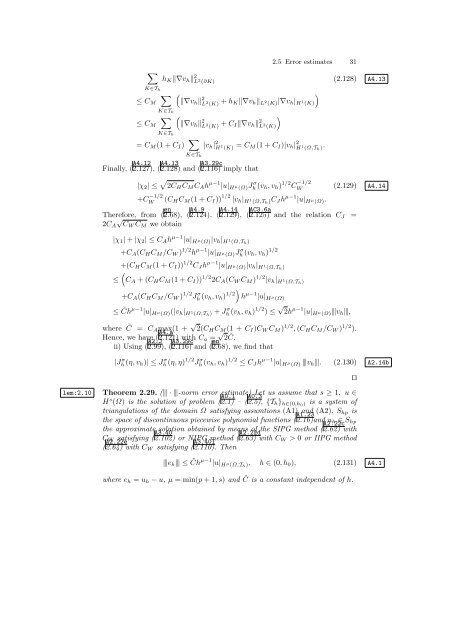 2.5 Error estimates 31
∑_{K∈T_h} h_K‖∇v_h‖²_{L²(∂K)} (2.128) A4.13
≤ C_M ∑_{K∈T_h} (‖∇v_h‖²_{L²(K)} + h_K‖∇v_h‖_{L²(K)}|∇v_h|_{H¹(K)})
≤ C_M ∑_{K∈T_h} (‖∇v_h‖²_{L²(K)} + C_I‖∇v_h‖²_{L²(K)})
= C_M(1 + C_I) ∑_{K∈T_h} |v_h|²_{H¹(K)} = C_M(1 + C_I)|v_h|²_{H¹(Ω,T_h)}.
Finally, (2.127), (2.128) and (2.116) imply that
|χ₂| ≤ √(2C_H C_M) C_A h^{μ−1}|u|_{H^μ(Ω)} J_h^σ(v_h, v_h)^{1/2} C_W^{−1/2} (2.129) A4.14
+C_W^{−1/2} (C_H C_M(1 + C_I))^{1/2} |v_h|_{H¹(Ω,T_h)} C_J h^{μ−1}|u|_{H^μ(Ω)}.
Therefore, from (2.68), (2.124), (2.129), (2.125) and the relation C_J =
2C_A√(C_W C_M) we obtain
|χ₁| + |χ₂| ≤ C_A h^{μ−1}|u|_{H^μ(Ω)}|v_h|_{H¹(Ω,T_h)}
+C_A(C_H C_M/C_W)^{1/2} h^{μ−1}|u|_{H^μ(Ω)} J_h^σ(v_h, v_h)^{1/2}
+(C_H C_M(1 + C_I))^{1/2} C_J h^{μ−1}|u|_{H^μ(Ω)}|v_h|_{H¹(Ω,T_h)}
≤ (C_A + (C_H C_M(1 + C_I))^{1/2} 2C_A(C_W C_M)^{1/2}|v_h|_{H¹(Ω,T_h)}
+C_A(C_H C_M/C_W)^{1/2} J_h^σ(v_h, v_h)^{1/2}) h^{μ−1}|u|_{H^μ(Ω)}
≤ C̃h^{μ−1}|u|_{H^μ(Ω)}(|v_h|_{H¹(Ω,T_h)} + J_h^σ(v_h, v_h)^{1/2}) ≤ √2h^{μ−1}|u|_{H^μ(Ω)}|||v_h|||,
where C̃ = C_A max(1 + √2(C_H C_M(1 + C_I)C_W C_M)^{1/2}, (C_H C_M/C_W)^{1/2}).
Hence, we have (2.121) with C_a = √2C̃.
ii) Using (2.99), (2.116) and (2.68), we find that
|J_h^σ(η, v_h)| ≤ J_h^σ(η, η)^{1/2} J_h^σ(v_h, v_h)^{1/2} ≤ C_J h^{μ−1}|u|_{H^μ(Ω)} |||v_h|||. (2.130) A2.14b
□
lem:2.10 Theorem 2.29. (||| · |||-norm error estimate) Let us assume that s ≥ 1, u ∈
H^s(Ω) is the solution of problem (2.1) – (2.5), {T_h}_{h∈(0,h₀)} is a system of
triangulations of the domain Ω satisfying assumtions (A1) and (A2), S_{hp} is
the space of discontinuous piecewise polynomial functions (2.16)and u_h ∈ S_{hp}
the approximate solution obtained by means of the SIPG method (2.62) with
C_W satisfying (2.102) or NIPG method (2.63) with C_W > 0 or IIPG method
(2.64) with C_W satisfying (2.110). Then
|||e_h||| ≤ C̃h^{μ−1}|u|_{H^μ(Ω,T_h)}, h ∈ (0, h₀), (2.131) A4.1
where e_h = u_h − u, μ = min(p + 1, s) and C̃ is a constant independent of h.